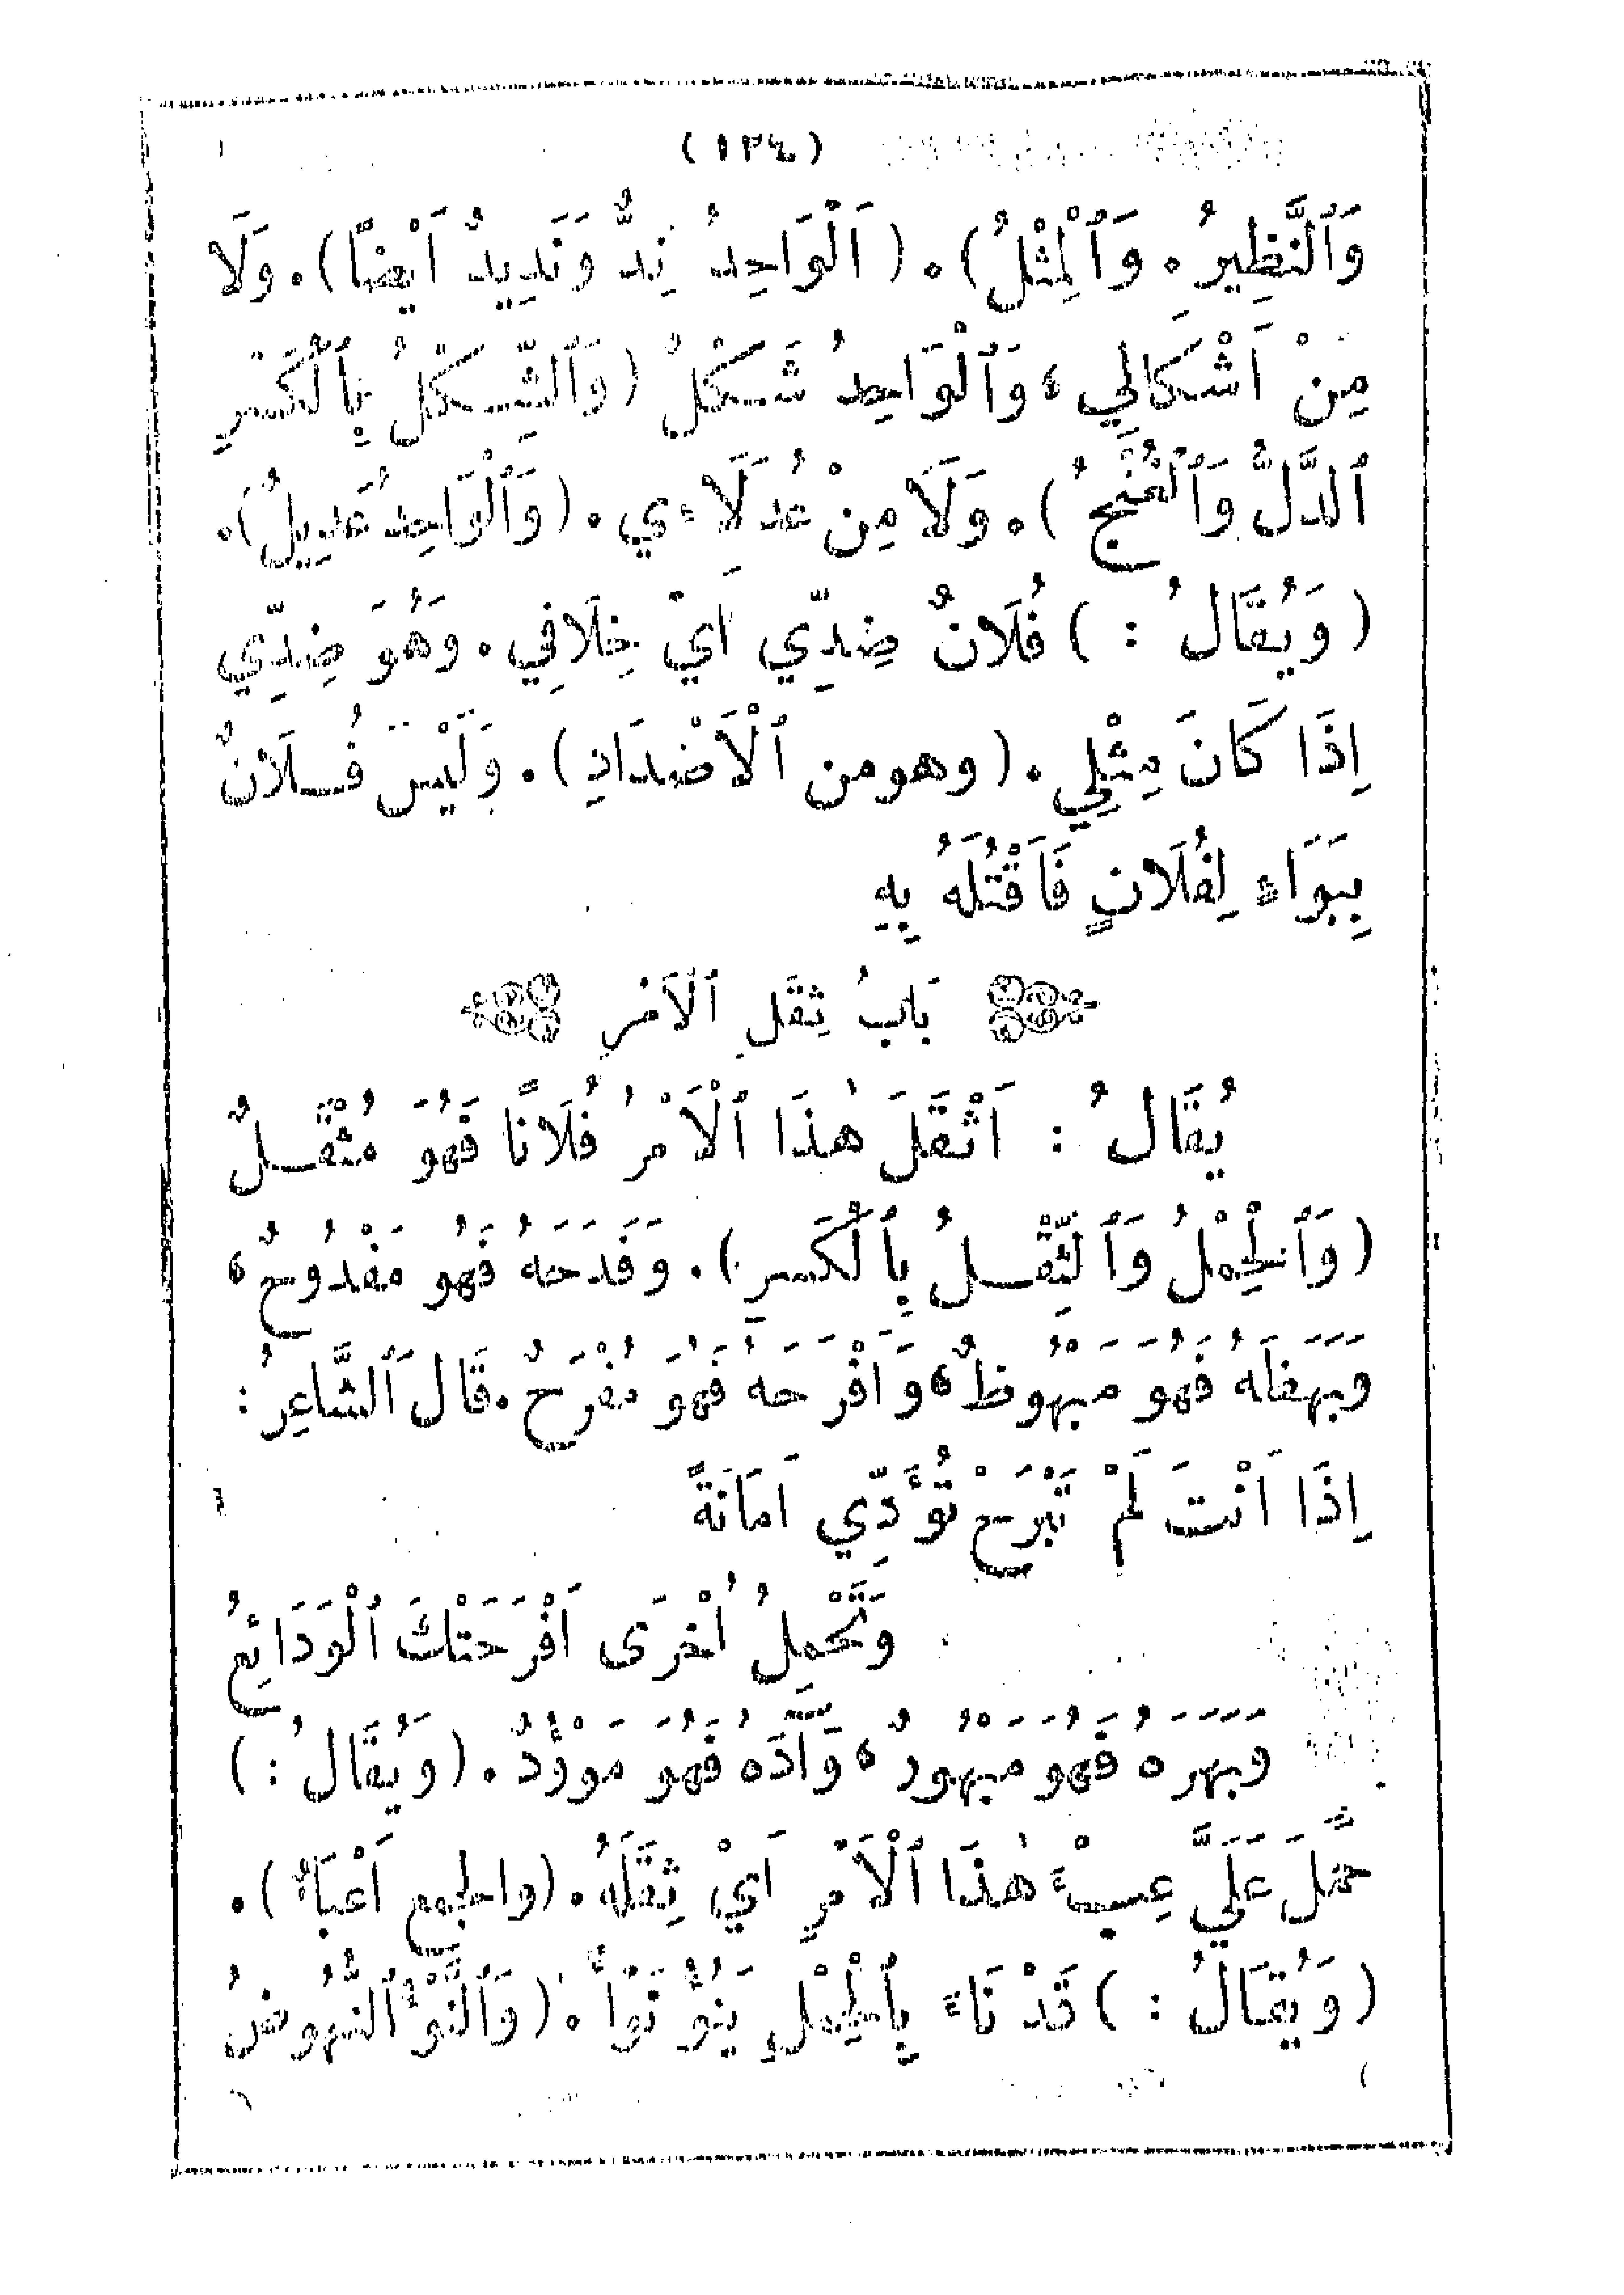 (١٣٤)
وَٱلنَّظِيرُ. وَٱلْمِثْلُ). (اَلْوَاحِدُ نِدٌّ وَنَدِيدٌ اَيْضًا). وَلَا
مِنْ اَشْكَالِي، وَٱلْوَاحِدُ شَكْلٌ (وَٱلشِّكْلُ بِٱلْكَسْرِ
ٱلدَّلُّ وَٱلْغُنْجُ). وَلَا مِنْ عُدَلَاءِي. (وَٱلْوَاحِدُ عَدِيلٌ).
(وَيُقَالُ:) فُلَانٌ ضِدِّي اَيْ خِلَافِي. وَهُوَ ضِدِّي
اِذَا كَانَ مِثْلِي. (وهو من ٱلْاَضْدَادِ). وَلَيْسَ فُلَانٌ
بِبَوَاءٍ لِفُلَانٍ فَاَقْتُلَهُ بِهِ
بَابُ ثِقَلِ ٱلْاَمْرِ
يُقَالُ: اَثْقَلَ هٰذَا ٱلْاَمْرُ فُلَانًا فَهُوَ مُثْقَلٌ
(وَٱلْحِمْلُ وَٱلثِّقْلُ بِٱلْكَسْرِ). وَفَدَحَهُ فَهُوَ مَفْدُوحٌ،
وَبَهَظَهُ فَهُوَ مَبْهُوظٌ، وَاَفْرَحَهُ فَهُوَ مُفْرَحٌ. قَالَ ٱلشَّاعِرُ:
اِذَا اَنْتَ لَمْ تَبْرَحْ تُؤَدِّي اَمَانَةً
وَتَحْمِلُ اُخْرَى اَفْرَحَتْكَ ٱلْوَدَائِعُ
وَبَهَرَهُ فَهُوَ مَبْهُورٌ، وَآدَهُ فَهُوَ مَوْؤُدٌ. (وَيُقَالُ:)
حَمَّلَ عَلَيَّ عِبْءَ هٰذَا ٱلْاَمْرِ اَيْ ثِقَلَهُ. (والجمع اَعْبَاءٌ).
(وَيُقَالُ:) قَدْ نَاءَ بِٱلْحِمْلِ يَنُوْءُ نَوْأً. (وَٱلنَّوْءُ ٱلنُّهُوضُ